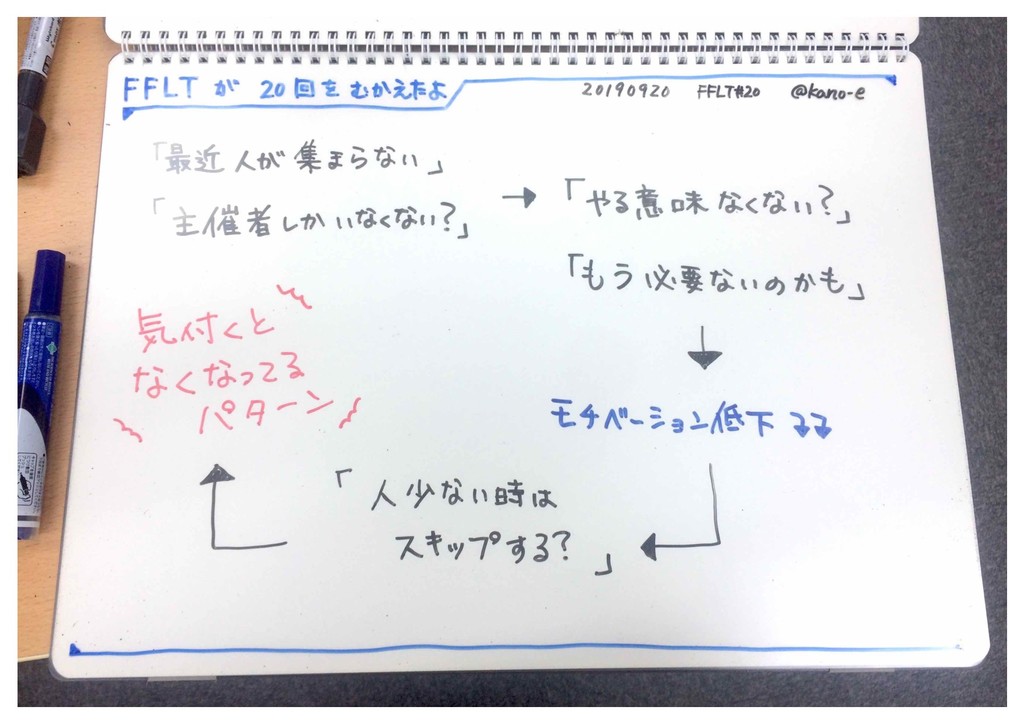 FFLT が 20回を むかえたよ
20190920 FFLT#20 @kano-e
「最近 人が 集まらない」
「主催者しかいなくない?」
→ 「やる意味なくない?」
「もう必要ないのかも」
モチベーション低下 ⤵⤵
「人少ない時は
スキップする?」
気付くと
なくなってる
パターン